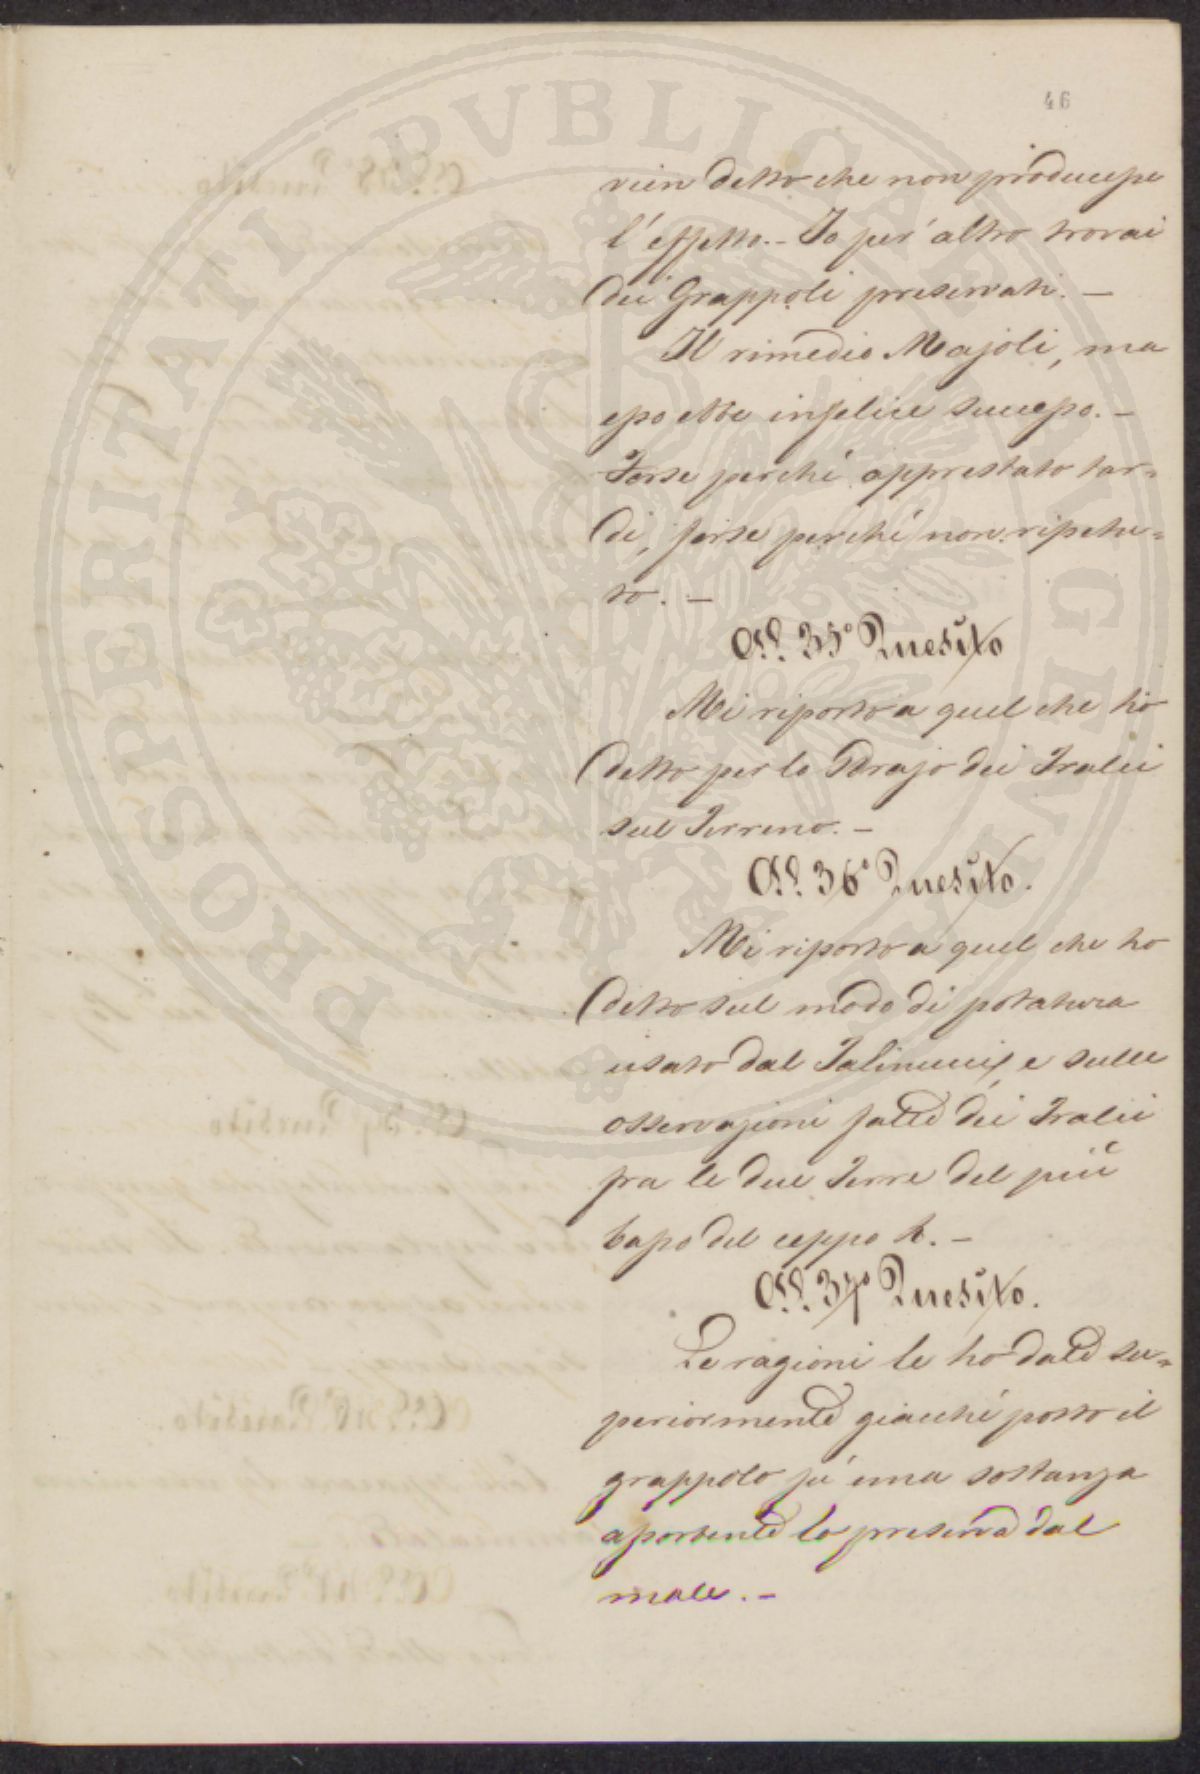 PROSPERITATI PVBLICAE AVGENDAE
46
vien detto che non producesse
l'effetto. - Io per altro trovai
dei Grappoli preservati. -
Il rimedio Majoli, ma
esso ebbe infelice successo. -
Forse perché apprestato tar=
di, forse perché non ripetu=
to. -
All. 35° Quesito
Mi riporto a quel che ho
detto per lo Sdrajo dei Tralci
sul Terreno. -
All. 36° Quesito.
Mi riporto a quel che ho
detto sul modo di potatura
usato dal e sulle
osservazioni fatte dei Tralci
fra le due Terre del più
basso del ceppo &. -
All. 37° Quesito.
Le ragioni le ho date su=
periormente giacché posto il
grappolo fu una sostanza
assorbente lo preserva dal
male. -